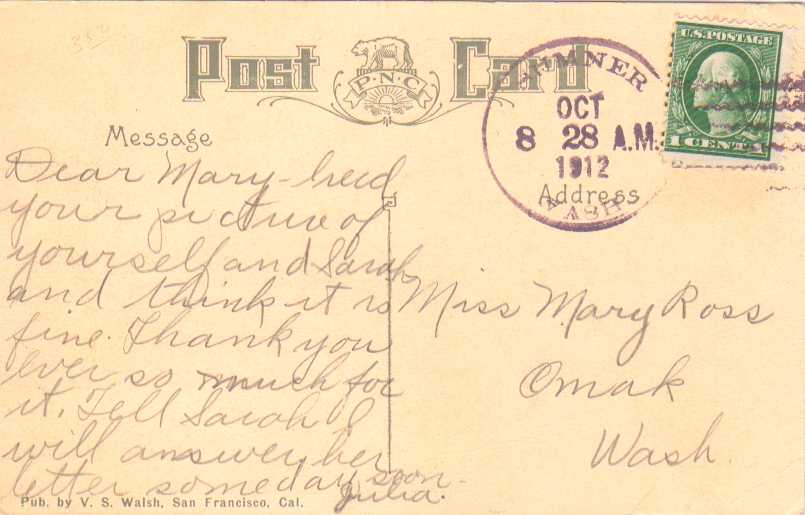 Post Card
P.N.C.
U.S. POSTAGE
1 CENT 1
SUMNER
OCT
8 28 A.M.
1912
WASH
Message
Address
Dear Mary - Recd
your picture of
yourself and Sarah
and think it is
fine. Thank you
ever so much for
it. Tell Sarah I
will answer her
letter someday soon.
Julia.
Miss Mary Ross
Omak
Wash.
Pub. by V. S. Walsh, San Francisco, Cal.